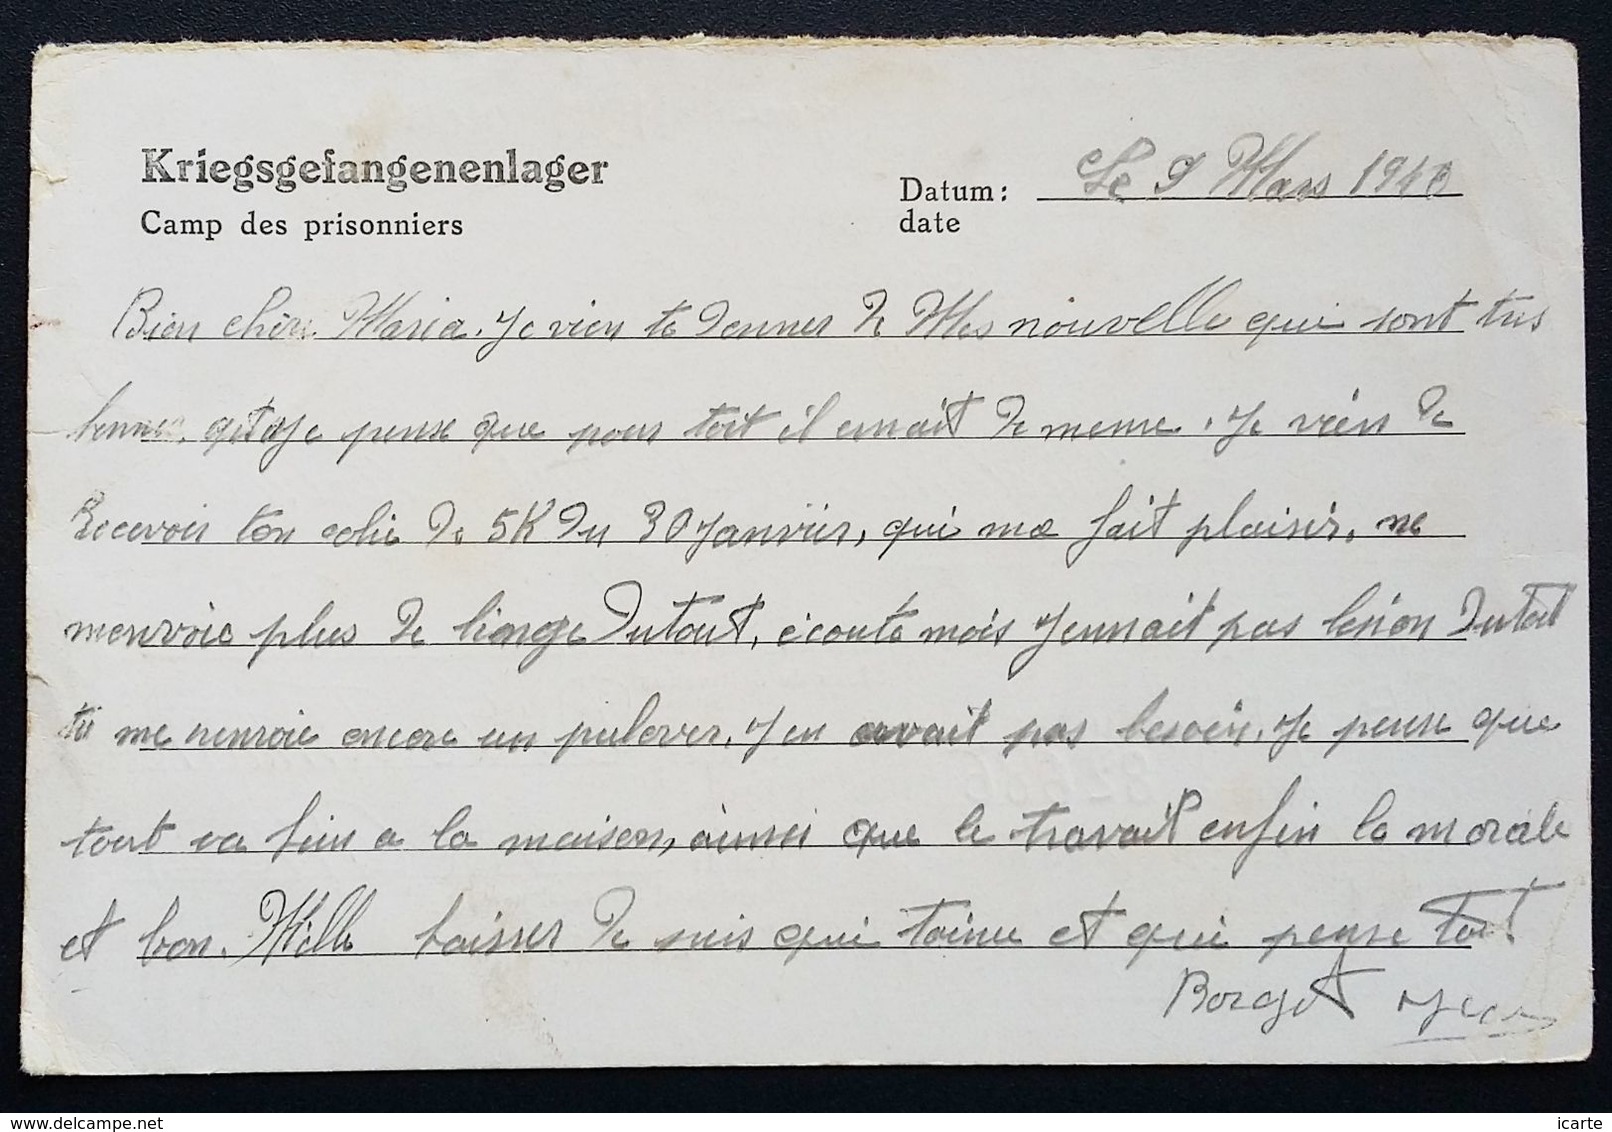 Kriegsgefangenenlager
Camp des prisonniers
Datum: Le 9 Mars 194
date
Bien chère Maria. Je vien te donner de Mes nouvelle qui sont tres
bonne. je pense que pour toit il ennait de meme. Je viens de
Recevoir ton colie de 5K du 30 Janvier, qui me fait plaisir. ne
menvoie plus de linge du tout, écoute mois Jennait pas besion du tout
tu me renvoie encore un pulover. J en avait pas besoin. Je pense que
tout va bien a la maison, ainsi que le travail enfin le morale
et bon. Mille baisser de suis qui taime et qui pense toit
Borget Jean
icarte